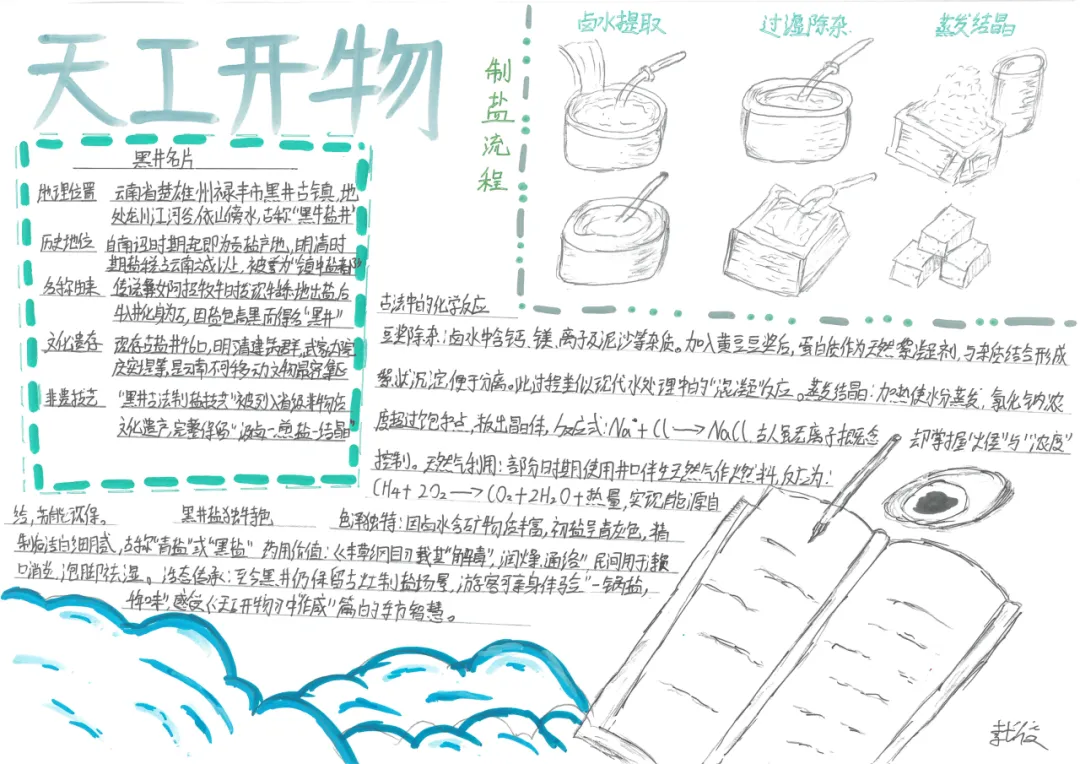 天工开物
制盐流程
卤水提取
过滤除杂
蒸发结晶
黑井名片
地理位置 云南省楚雄州禄丰市黑井古镇,地
处龙川江河谷,依山傍水,古称“黑牛盐井”
历史地位 自南诏时期起即为贡盐产地,明清时
期盐税占云南 以上,被誉为“ 盐都”
名称由来 传说彝女阿招牧牛时发现牛舔地出盐后
牛入井化身为石,因盐色 黑而得名“黑井”
文化遗存 现存古盐井 口,明清建筑群,武家大院
庆安堤等,是云南不可移动文物最密集区
非遗技艺 “黑井古法制盐技艺”被列入省级非物质
文化遗产,完整保留“ 卤—煎盐—结晶”
古法中的化学反应
豆浆除杂:卤水中含钙、镁、离子及泥沙等杂质。加入黄豆豆浆后,蛋白质作为天然絮凝剂,与杂质结合形成
絮状沉淀,便于分离。此过程类似现代水处理中的“混凝”反应。蒸发结晶:加热使水分蒸发,氯化钠浓
度超过饱和点,析出晶体,反应式:Na⁺+Cl⁻→NaCl,古人虽无离子概念 却掌握“火候”与“浓度”
控制。天然气利用:部分时期使用井口伴生天然气作燃料,反应为:
CH4+2O2→CO2+2H2O+热量,实现能源自
给,节能环保。
黑井盐独特色
色泽独特:因卤水含矿物质丰富,初盐呈青灰色,精
制后洁白细腻,古称“青盐”或“黑盐” 药用价值:《本草纲目》载其“解毒”,润燥,通络”,民间用于
口消炎,泡脚祛湿。活态传承:至今黑井仍保留古灶制盐场景,游客可亲身体验“一锅盐,
味”感受《天工开物》中“作咸”篇的东方智慧。